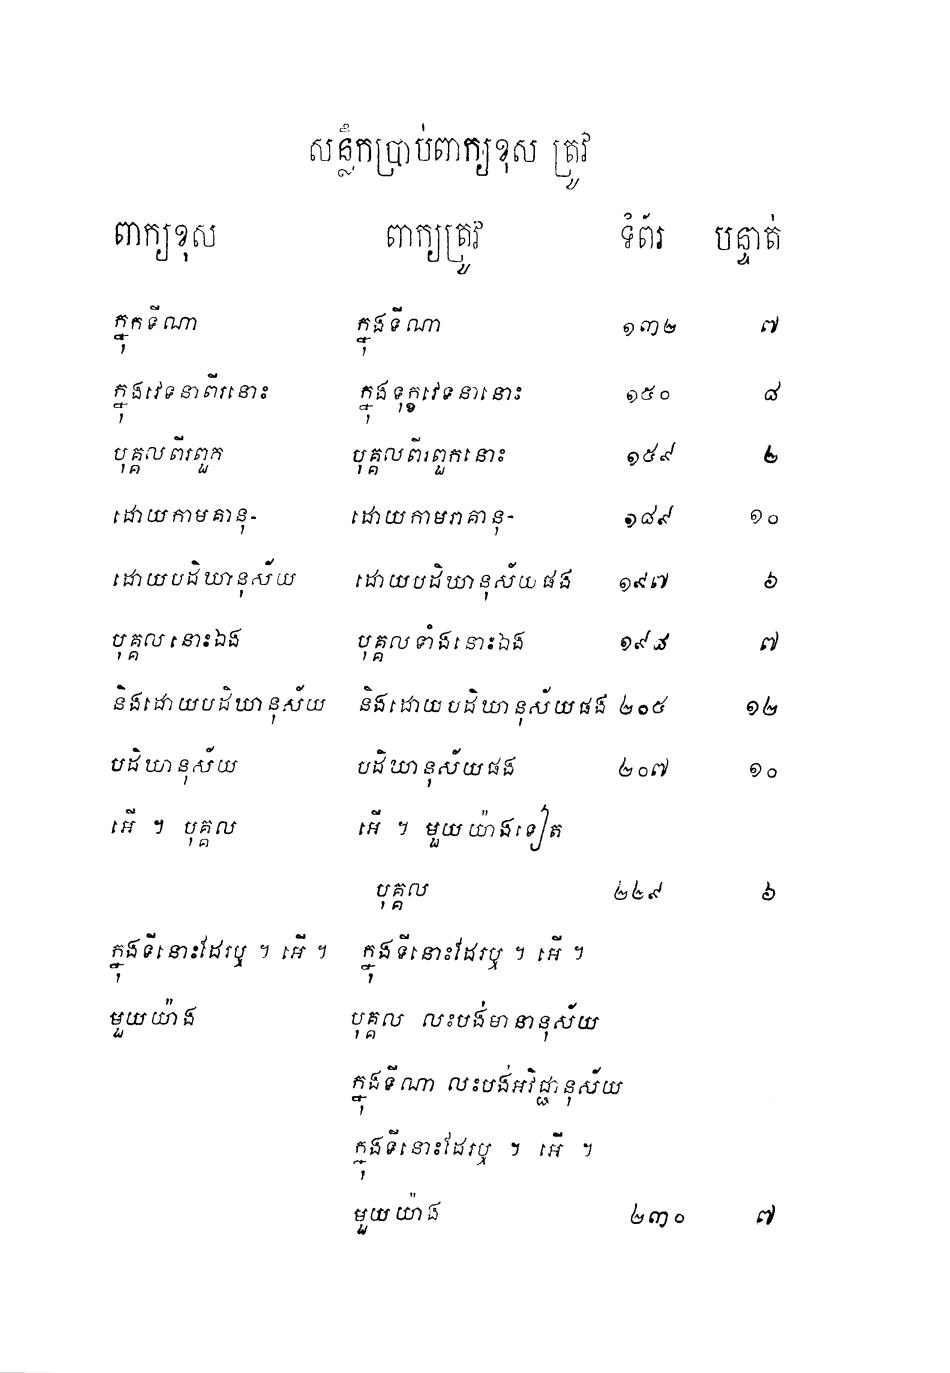 សន្លឹកប្រាប់ពាក្យខុស ត្រូវ
ពាក្យខុស ពាក្យត្រូវ ទំព័រ បន្ទាត់
ក្នុកទីណា ក្នុងទីណា ១៣២ ៧
ក្នុងវេទនាពីរនោះ ក្នុងទុក្ខវេទនានោះ ១៥០ ៨
បុគ្គលពីរពួក បុគ្គលពីរពួកនោះ ១៥៩ ២
ដោយកាមគានុ- ដោយកាមរាគានុ- ១៨៩ ១០
ដោយបដិឃានុស័យ ដោយបដិឃានុស័យផង ១៩៧ ៦
បុគ្គលនោះឯង បុគ្គលទាំងនោះឯង ១៩៨ ៧
និងដោយបដិឃានុស័យ និងដោយបដិឃានុស័យផង ២០៥ ១២
បដិឃានុស័យ បដិឃានុស័យផង ២០៧ ១០
អើ ។ បុគ្គល អើ ។ មួយយ៉ាងទៀត
បុគ្គល ២២៩ ៦
ក្នុងទីនោះដែរឬ ។ អើ ។ ក្នុងទីនោះដែរឬ ។ អើ ។
មួយយ៉ាង បុគ្គល លះបង់មានានុស័យ
ក្នុងទីណា លះបង់អវិជ្ជានុស័យ
ក្នុងទីនោះដែរឬ ។ អើ ។
មួយយ៉ាង ២៣០ ៧